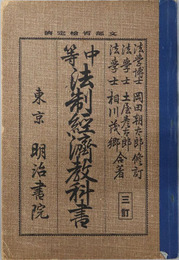 文部省檢定濟
法學博士 岡田朝太郎 修訂
法學士 土屋彥太郎
法學士 相川茂鄕 合著
三訂
中等 法制經濟教科書
東京 明治書院